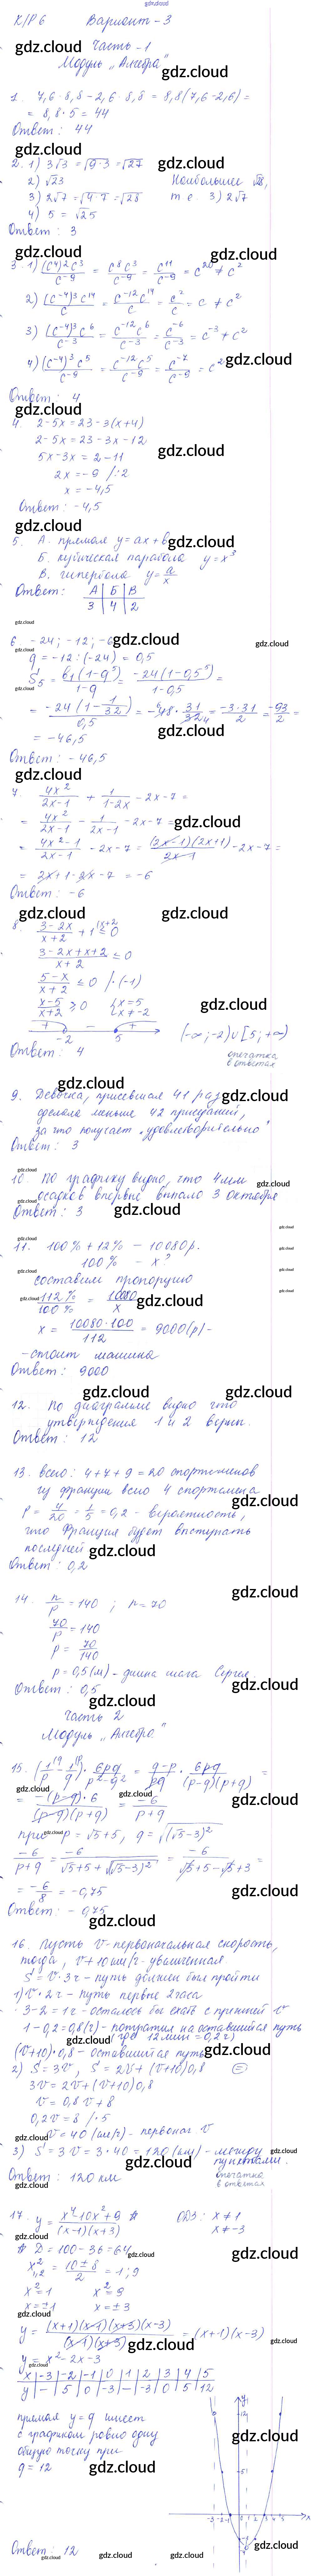 К/Р 6 Вариант - 3
Часть - 1
Модуль „Алгебра"
1. 7,6 · 8,8 - 2,6 · 8,8 = 8,8(7,6 - 2,6) =
= 8,8 · 5 = 44
Ответ: 44
2. 1) 3√3 = √(9·3) = √27
2) √23 Наибольшее √28,
3) 2√7 = √(4·7) = √28 т.е. 3) 2√7
4) 5 = √25
Ответ: 3
3. 1) (c⁴)²c³/c⁻⁹ = c⁸c³/c⁻⁹ = c¹¹/c⁻⁹ = c²⁰ ≠ c²
2) (c⁻⁴)³c¹⁴/c = c⁻¹²c¹⁴/c = c²/c = c ≠ c²
3) (c⁻⁴)³c⁶/c⁻³ = c⁻¹²c⁶/c⁻³ = c⁻⁶/c⁻³ = c⁻³ ≠ c²
4) (c⁻⁴)³c⁵/c⁻⁹ = c⁻¹²c⁵/c⁻⁹ = c⁻⁷/c⁻⁹ = c²
Ответ: 4
4. 2 - 5x = 23 - 3(x+4)
2 - 5x = 23 - 3x - 12
5x - 3x = 2 - 11
2x = -9 /:2
x = -4,5
Ответ: -4,5
5. А. прямая y = ax + b
Б. кубическая парабола y = x³
В. гипербола y = a/x
Ответ: А Б В
3 4 2
6. -24; -12; -6
q = -12 : (-24) = 0,5
S₅ = b₁(1-q⁵)/(1-q) = -24(1-0,5⁵)/(1-0,5) =
= -24(1 - 1/32)/0,5 = -48 · 31/32 = -3·31/2 = -93/2 =
= -46,5
Ответ: -46,5
7. 4x²/(2x-1) + 1/(1-2x) - 2x - 7 =
= 4x²/(2x-1) - 1/(2x-1) - 2x - 7 =
= (4x²-1)/(2x-1) - 2x - 7 = (2x-1)(2x+1)/(2x-1) - 2x - 7 =
= 2x + 1 - 2x - 7 = -6
Ответ: -6
8. (3-2x)/(x+2) + 1 ≤ 0
(3-2x+x+2)/(x+2) ≤ 0
(5-x)/(x+2) ≤ 0 /·(-1)
(x-5)/(x+2) ≥ 0 x = 5
x ≠ -2
+ - +
-2 5 (-∞; -2) ∪ [5; +∞)
Ответ: 4 опечатка
в ответах
9. Девочка, присевшая 41 раз,
сделала меньше 42 приседаний,
за что получает „удовлетворительно"
Ответ: 3
10. По графику видно, что 4 мм
осадков впервые выпало 3 октября
Ответ: 3
11. 100% + 12% - 10080 р.
100% - x?
составим пропорцию
112%/100% = 10080/x
x = 10080·100/112 = 9000(р) -
- стоит машина
Ответ: 9000
12. По диаграмме видно что
утверждения 1 и 2 верны.
Ответ: 12
13. всего: 4+7+9 = 20 спортсменов
из франции всего 4 спортсмена
P = 4/20 = 1/5 = 0,2 - вероятность,
что Франция будет выступать
последней
Ответ: 0,2
14. n/p = 140; n = 70
70/p = 140
p = 70/140
p = 0,5(м) - длина шага Сергея.
Ответ: 0,5
Часть 2
Модуль „Алгебра"
15. (1/p - 1/q) · 6pq/(p²-q²) = (q-p)/pq · 6pq/((p-q)(p+q)) =
= -(p-q)·6/((p-q)(p+q)) = -6/(p+q)
при p = √5+5, q = √(√5-3)²
-6/(p+q) = -6/(√5+5+√(√5-3)²) = -6/(√5+5-√5+3) =
= -6/8 = -0,75
Ответ: -0,75
16. Пусть v - первоначальная скорость,
тогда, v+10 км/ч - увеличенная
S = v·3ч - путь должен был пройти
1) v·2ч - путь первые 2 часа
3-2 = 1ч - осталось бы ехать с прежней v
1-0,2 = 0,8(ч) - потратил на оставшийся путь
(где 12 мин = 0,2ч)
(v+10)·0,8 - оставшийся путь
2) S = 3v, S = 2v + (v+10)0,8 =
3v = 2v + (v+10)0,8
v = 0,8v + 8
0,2v = 8 /·5
v = 40 (км/ч) - первонач v
3) S = 3v = 3·40 = 120 (км) - между
пунктами.
Ответ: 120 км опечатка
в ответах
17. y = (x⁴-10x²+9)/((x-1)(x+3)) # ОДЗ: x ≠ 1
x ≠ -3
# D = 100 - 36 = 64
x²₁,₂ = (10±8)/2 = 1; 9
x² = 1 x² = 9
x = ±1 x = ±3
y = (x+1)(x-1)(x+3)(x-3)/((x-1)(x+3)) = (x+1)(x-3)
y = x² - 2x - 3
x -3 -2 -1 0 1 2 3 4 5
y - 5 0 -3 - -3 0 5 12
прямая y = a имеет
с графиком ровно одну
общую точку при
a = 12
Ответ: 12
gdz.cloud